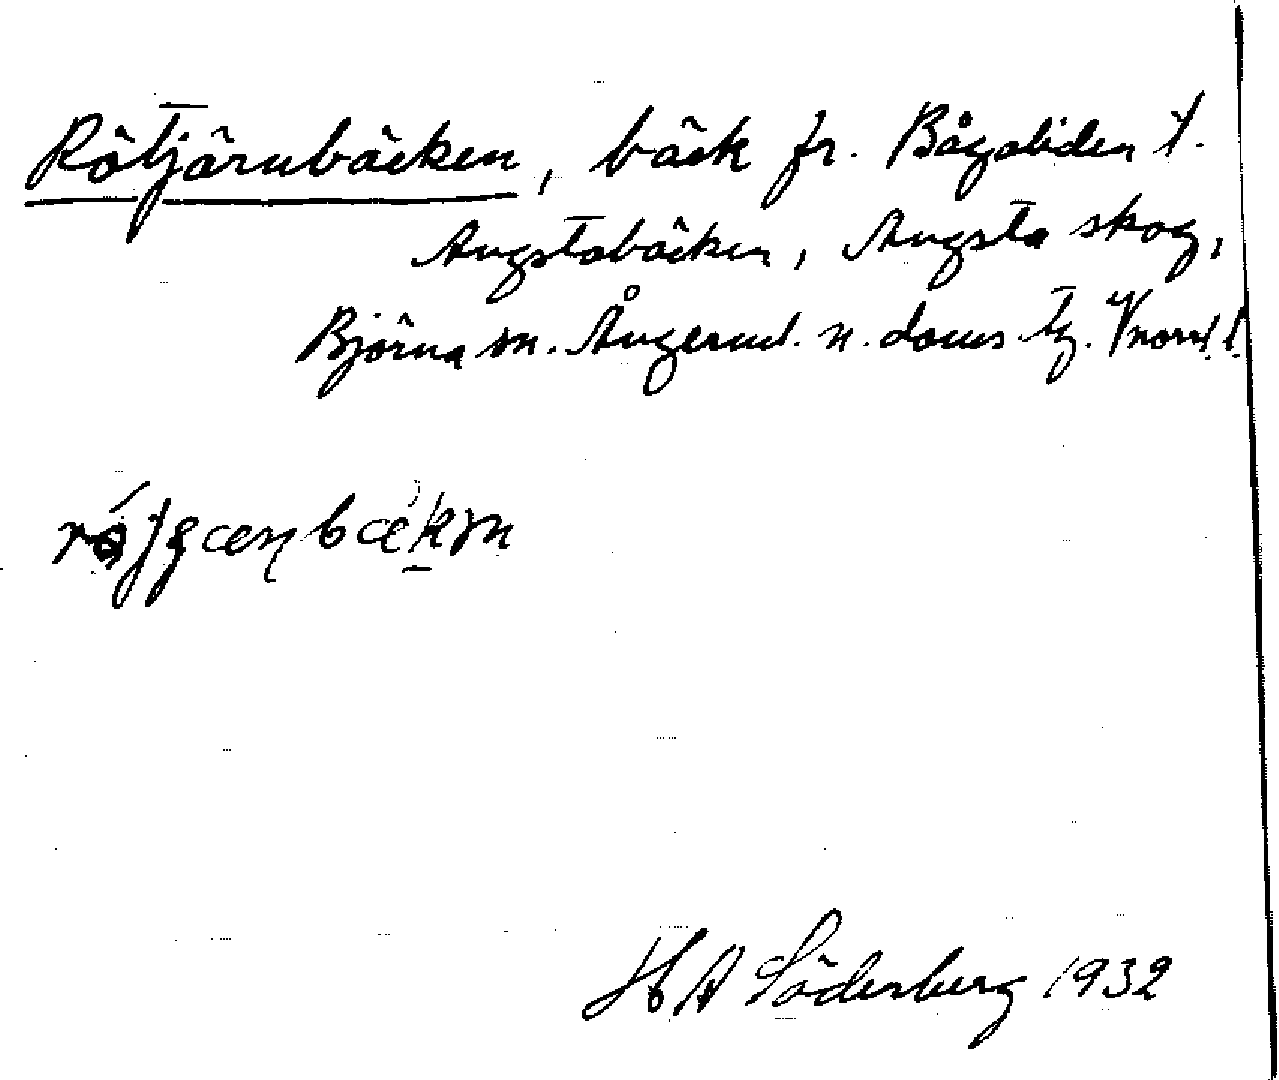 Rötjärnbäcken, bäck fr. Bågaliden t.
Augstabäcken, Augsta skog,
Björna sn. Ångerml. n. doms tg. Vnorrl. l.
HA Söderberg 1932